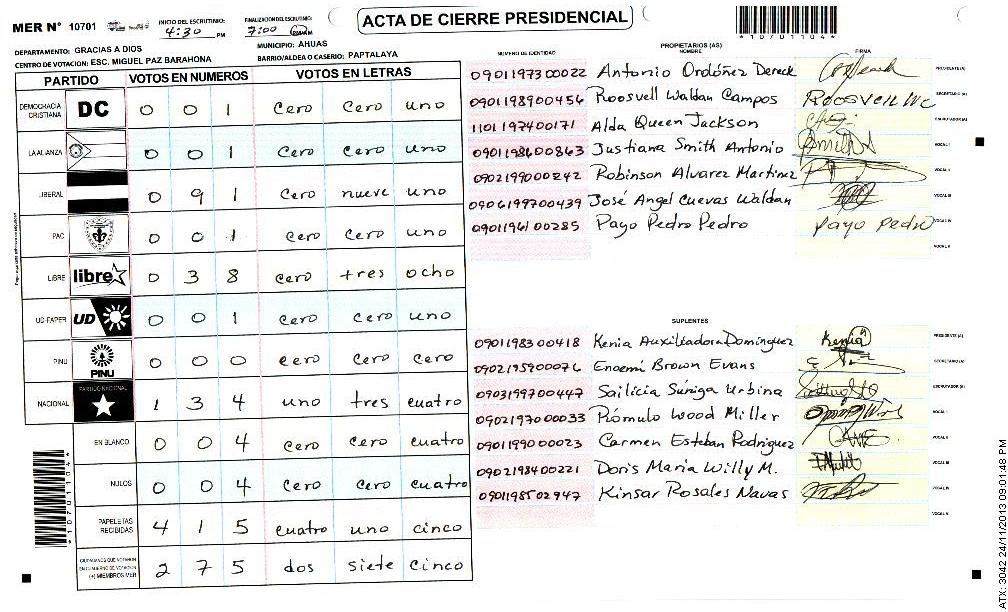 MER N° 10701
INICIO DEL ESCRUTINIO: 4:30 PM
FINALIZACION DEL ESCRUTINIO: 7:00
ACTA DE CIERRE PRESIDENCIAL
*107011044*
DEPARTAMENTO: GRACIAS A DIOS
MUNICIPIO: AHUAS
CENTRO DE VOTACION: ESC. MIGUEL PAZ BARAHONA
BARRIO/ALDEA O CASERIO: PAPTALAYA
PARTIDO VOTOS EN NUMEROS VOTOS EN LETRAS
DEMOCRACIA CRISTIANA DC 0 0 1 cero cero uno
LA ALIANZA 0 0 1 cero cero uno
LIBERAL 0 9 1 cero nueve uno
PAC 0 0 1 cero cero uno
LIBRE libre 0 3 8 cero tres ocho
UD-FAPER UD 0 0 1 cero cero uno
PINU PINU 0 0 0 cero cero cero
NACIONAL PARTIDO NACIONAL 1 3 4 uno tres cuatro
EN BLANCO 0 0 4 cero cero cuatro
NULOS 0 0 4 cero cero cuatro
PAPELETAS RECIBIDAS 4 1 5 cuatro uno cinco
CIUDADANOS QUE VOTARON EN CUADERNO DE VOTACION (+) MIEMBROS MER 2 7 5 dos siete cinco
*107011044*
PROPIETARIOS (AS)
NUMERO DE IDENTIDAD NOMBRE FIRMA
0901197300022 Antonio Ordóñez Dereck PRESIDENTE (A)
0901198900456 Roosvell Waldan Campos ROOSVELL WC SECRETARIO (A)
1101197400171 Alda Queen Jackson ESCRUTADOR (A)
0901198600863 Justiana Smith Antonio VOCAL I
0902199000242 Robinson Alvarez Martinez VOCAL II
0906199700439 José Angel Cuevas Waldan VOCAL III
0901196100285 Payo Pedro Pedro payo pedro VOCAL IV
VOCAL V
SUPLENTES
0901198300418 Kenia Auxiliadora Dominguez Kenia PRESIDENTE (A)
0902195900076 Enoemi Brown Evans SECRETARIO (A)
0903199700447 Sailicia Suniga Urbina ESCRUTADOR (A)
0902197000033 Rómulo Wood Miller VOCAL I
0901199000023 Carmen Esteban Rodriguez VOCAL II
0902198400221 Doris Maria Willy M. VOCAL III
0901198502947 Kinsar Rosales Navas VOCAL IV
VOCAL V
ATX: 3042 24/11/2013 09:01:48 PM